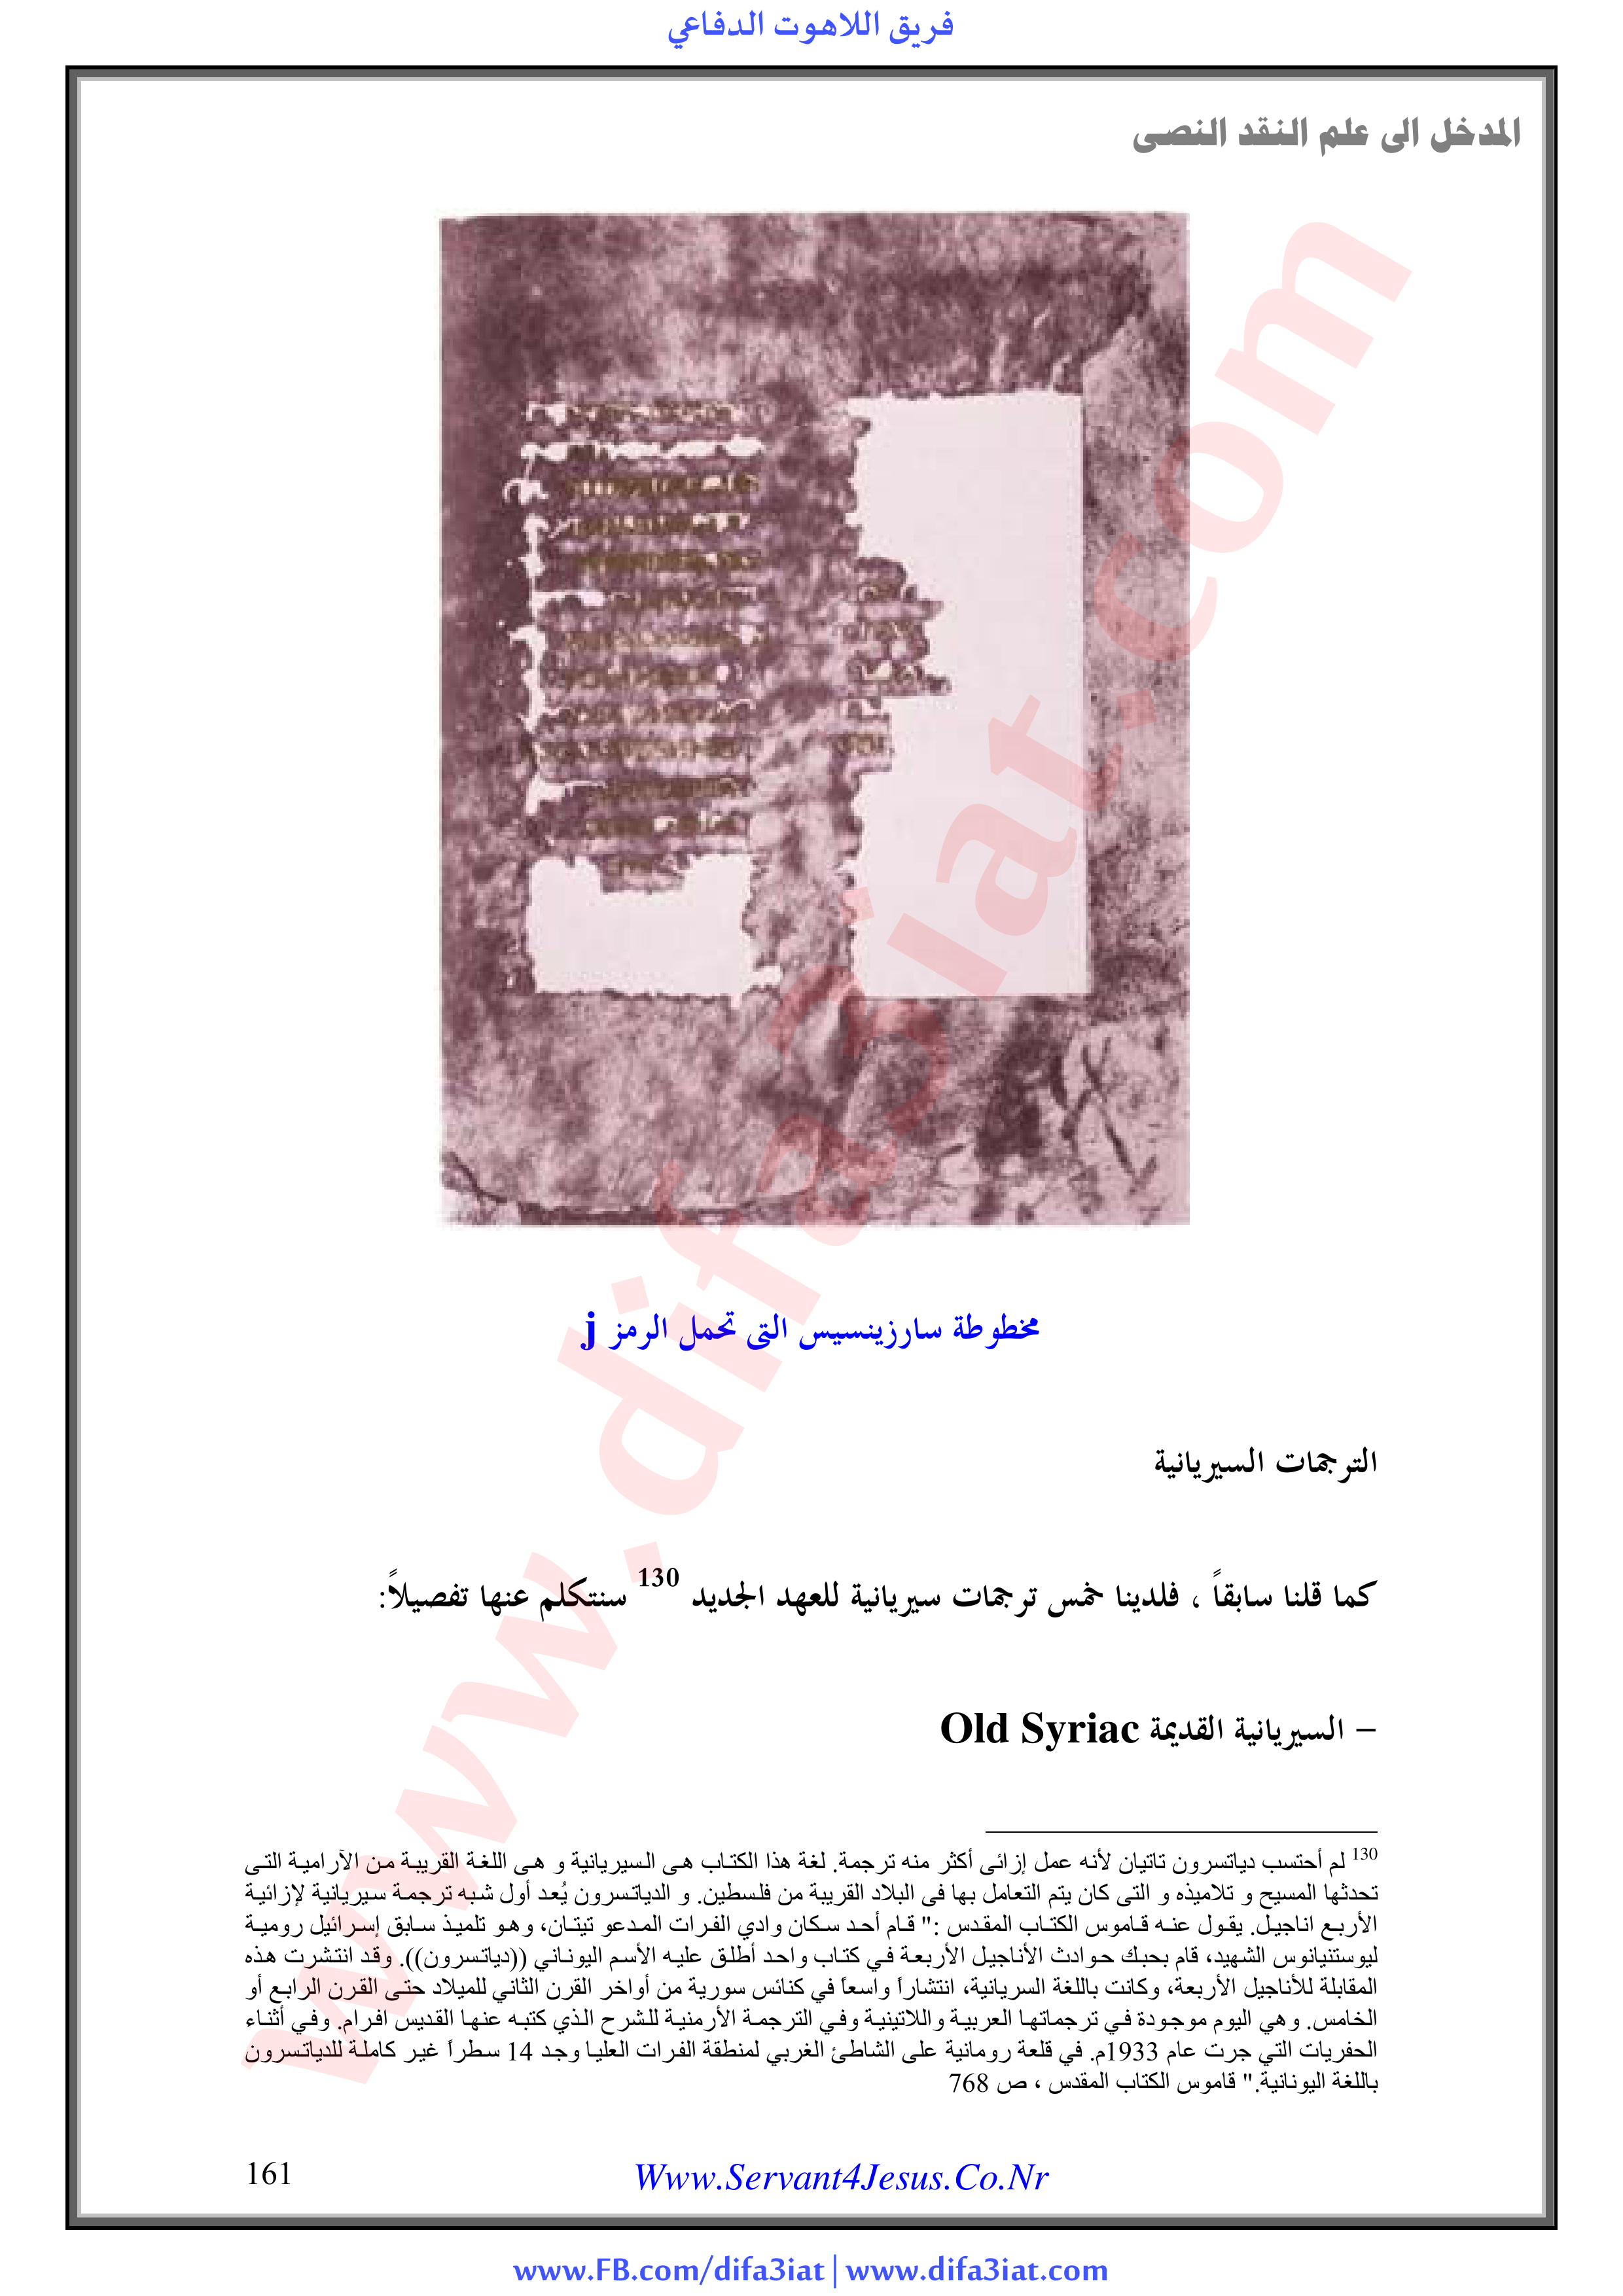 فريق اللاهوت الدفاعي
المدخل الى علم النقد النصى
مخطوطة سارزينسيس التى تحمل الرمز j
الترجمات السيريانية
كما قلنا سابقاً ، فلدينا خمس ترجمات سيريانية للعهد الجديد 130 سنتكلم عنها تفصيلاً:
– السيريانية القديمة Old Syriac
130 لم أحتسب دياتسرون تاتيان لأنه عمل إزائى أكثر منه ترجمة. لغة هذا الكتاب هى السيريانية و هى اللغة القريبة من الآرامية التى
تحدثها المسيح و تلاميذه و التى كان يتم التعامل بها فى البلاد القريبة من فلسطين. و الدياتسرون يُعد أول شبه ترجمة سيريانية لإزائية
الأربع اناجيل. يقول عنه قاموس الكتاب المقدس :" قام أحد سكان وادي الفرات المدعو تيتان، وهو تلميذ سابق إسرائيل رومية
ليوستنيانوس الشهيد، قام بحبك حوادث الأناجيل الأربعة في كتاب واحد أطلق عليه الأسم اليوناني ((دياتسرون)). وقد انتشرت هذه
المقابلة للأناجيل الأربعة، وكانت باللغة السريانية، انتشاراً واسعاً في كنائس سورية من أواخر القرن الثاني للميلاد حتى القرن الرابع أو
الخامس. وهي اليوم موجودة في ترجماتها العربية واللاتينية وفي الترجمة الأرمنية للشرح الذي كتبه عنها القديس افرام. وفي أثناء
الحفريات التي جرت عام 1933م. في قلعة رومانية على الشاطئ الغربي لمنطقة الفرات العليا وجد 14 سطراً غير كاملة للدياتسرون
باللغة اليونانية." قاموس الكتاب المقدس ، ص 768
161
Www.Servant4Jesus.Co.Nr
www.FB.com/difa3iat | www.difa3iat.com
www.difa3iat.com